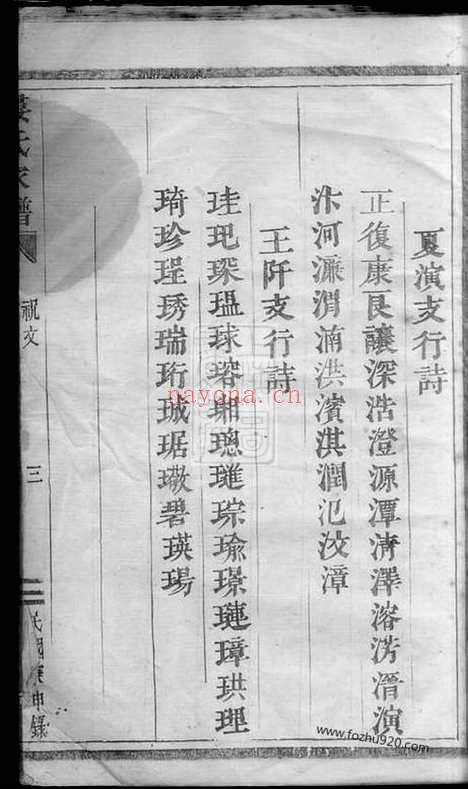 夏演支行詩
正復康艮讓深浩澄源潭清澤溶滂潛演
汴河濂渭湳洪濱淇潤氾汶漳
王阡支行詩
珪玘琛瑥球瑢瑚璁璡琮瑜璟璉璋珙理
琦珍珵琇瑞珩珹琚璥碧瑛瑒
氏家譜
祝文
三
民國庚申錄
nayona.cn
www.fozhu920.com